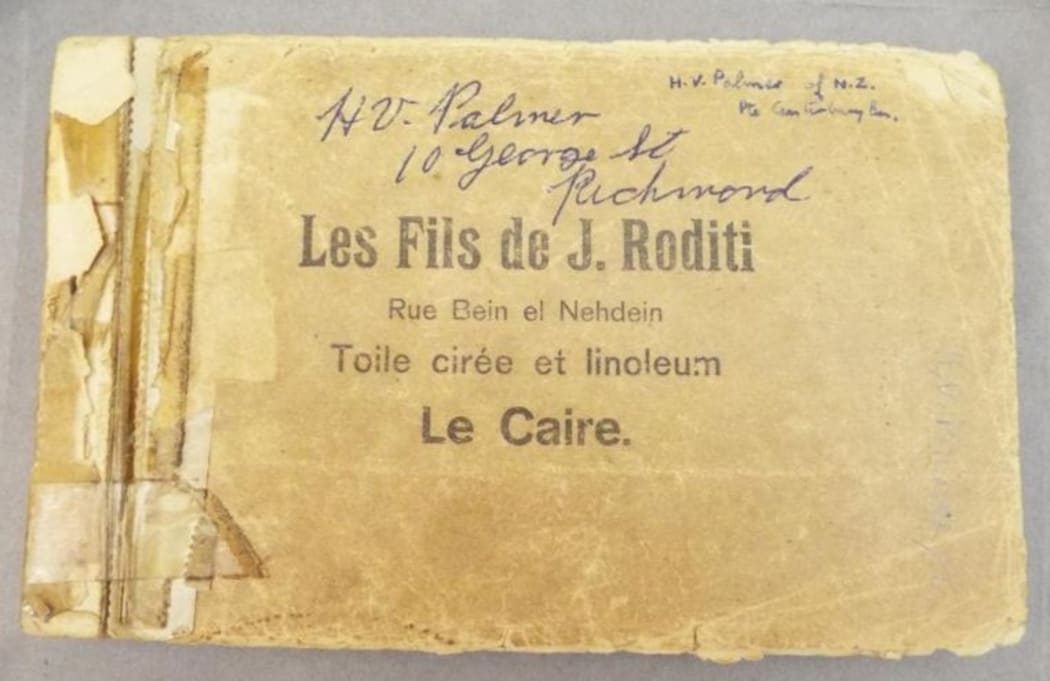 H.V. Palmer of N.Z.
Pte Canterbury Bn.
H V. Palmer
10 George St
Richmond
Les Fils de J. Roditi
Rue Bein el Nehdein
Toile cirée et linoleum
Le Caire.